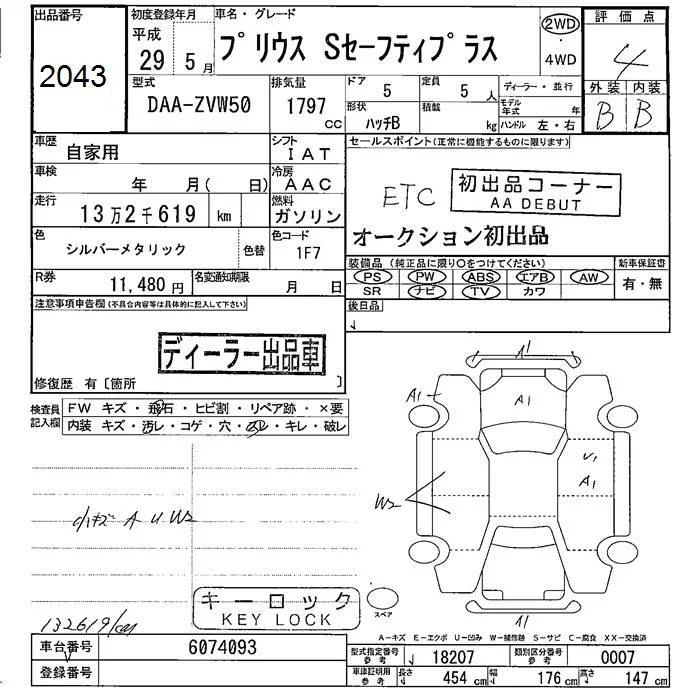 出品番号
2043
初度登録年月
平成
29年 5月
車名・グレード
プリウス Sセーフティプラス
2WD
4WD
評価点
4
外装 内装
B B
型式
DAA-ZVW50
排気量
1797
CC
ドア
5
定員
5 人
形状
ハッチB
積載
kg
ディーラー・並行
モデル年式 年
ハンドル 左・右
車歴
自家用
シフト
IAT
車検
年 月( 日)
冷房
AAC
走行
13万2千619 km
燃料
ガソリン
色
シルバーメタリック
色替
色コード
1F7
R券
11,480円
名変通知期限
月 日
セールスポイント(正常に機能するものに限ります)
ETC
初出品コーナー
AA DEBUT
オークション初出品
装備品(純正品に限り○をつけてください)
PS PW ABS エアB AW
SR ナビ TV カワ
新車保証書
有・無
後日品
注意事項申告欄(不具合内容等は具体的に記入して下さい)
ディーラー出品車
修復歴 有〔箇所 〕
検査員記入欄
FW キズ・飛石・ヒビ割・リペア跡・×要
内装 キズ・汚レ・コゲ・穴・スレ・キレ・破レ
小キズ A U W2
132619km
キーロック
KEY LOCK
A1
A1
U1
A1
W2
スペア
A-キズ E-エクボ U-凹み W-補修跡 S-サビ C-腐食 XX-交換済
車台番号
6074093
登録番号
型式指定番号
参考
18207
類別区分番号
参考
0007
車庫証明用
参考
長さ 454 cm
幅 176 cm
高さ 147 cm